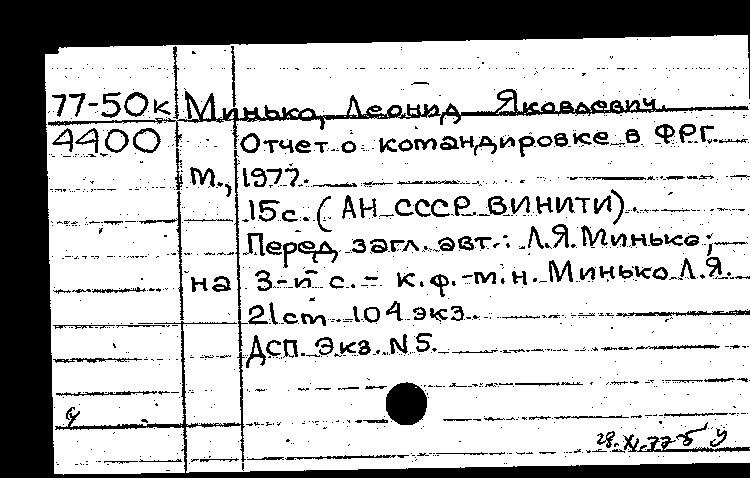 77-50к Минько, Леонид Яковлевич.
4400 Отчет о командировке в ФРГ.
М., 1977.
15с. (АН СССР ВИНИТИ).
Перед загл. авт.: Л.Я. Минько;
на 3-й с. - к.ф.-м.н. Минько Л.Я.
21cm 104 экз.
ДСП. Экз. N5.
28.XI.77